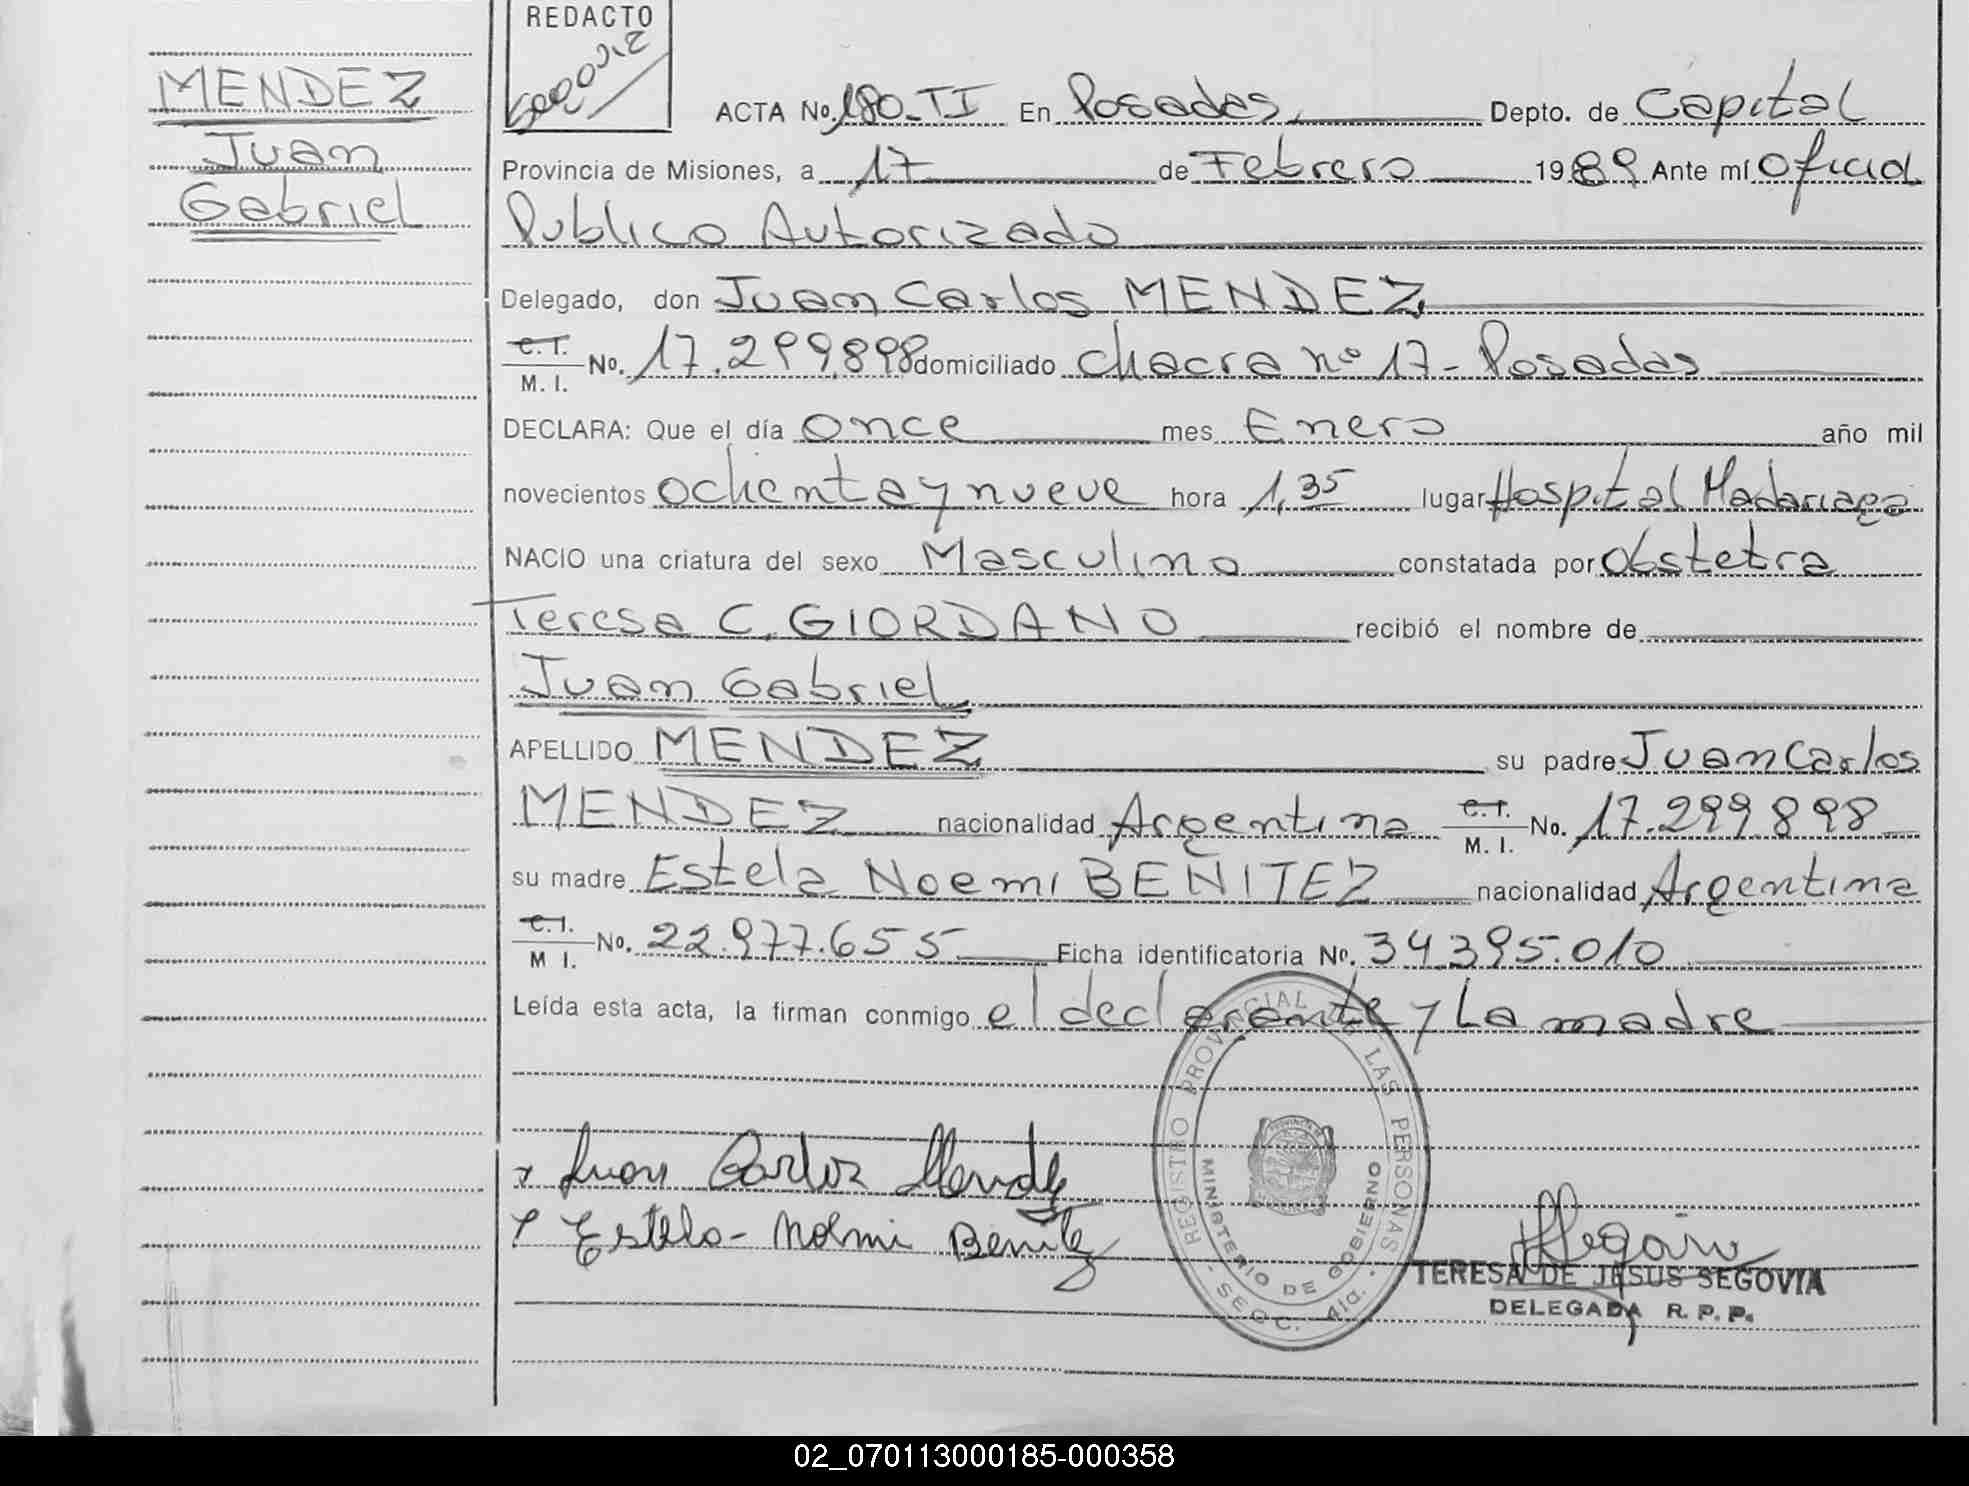 MENDEZ
Juan
Gabriel
REDACTO
ACTA No. 180-TI En Posadas Depto. de Capital
Provincia de Misiones, a 17 de Febrero 1989 Ante mí Oficial
Publico Autorizado
Delegado, don Juan Carlos MENDEZ
C.I.
M. I. No. 17.299.898 domiciliado Chacra nº 17 - Posadas
DECLARA: Que el día once mes Enero año mil
novecientos ochenta y nueve hora 1,35 lugar Hospital Madariaga
NACIO una criatura del sexo Masculino constatada por Obstetra
Teresa C. GIORDANO recibió el nombre de
Juan Gabriel
APELLIDO MENDEZ su padre Juan Carlos
MENDEZ nacionalidad Argentina C.I. M. I. No. 17.299.898
su madre Estela Noemi BENITEZ nacionalidad Argentina
C.I.
M I. No. 22.977.655 Ficha identificatoria No. 34.395.010
Leída esta acta, la firman conmigo el declarante y la madre
Juan Carlos Mendez
Estela Noemi Benitez
REGISTRO PROVINCIAL DE LAS PERSONAS
MINISTERIO DE GOBIERNO
TERESA DE JESUS SEGOVIA
DELEGADA R. P. P.
02_070113000185-000358